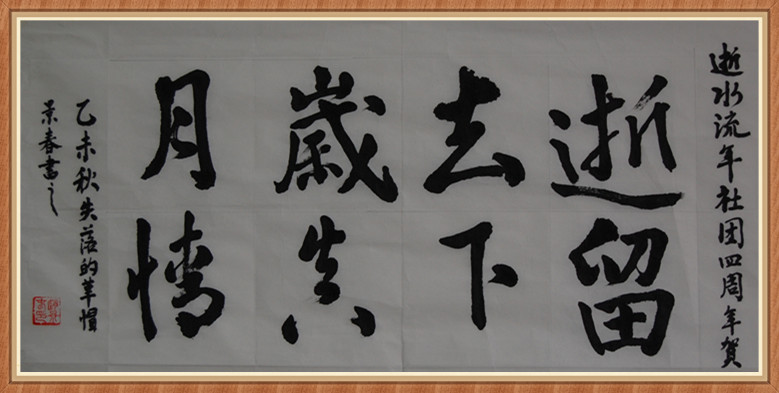 逝水流年社团四周年贺
逝去歲月
留下真情
乙未秋失落的
景春書之